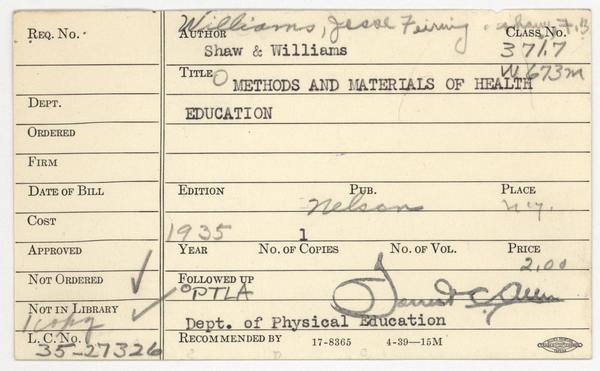 Williams, Jesse Feiring. Shaw, F.B
REQ. NO. AUTHOR CLASS NO.
Shaw & Williams 371.7
TITLE W673m
METHODS AND MATERIALS OF HEALTH
DEPT. EDUCATION
ORDERED
FIRM
DATE OF BILL EDITION PUB. PLACE
Nelson N.Y.
COST 1935 1
APPROVED YEAR NO. OF COPIES NO. OF VOL. PRICE
2.00
NOT ORDERED ✓ FOLLOWED UP
PTLA Forrest C. Allen
NOT IN LIBRARY ✓
1 copy Dept. of Physical Education
L. C. NO. RECOMMENDED BY 17-8365 4-39—15M
35-27326